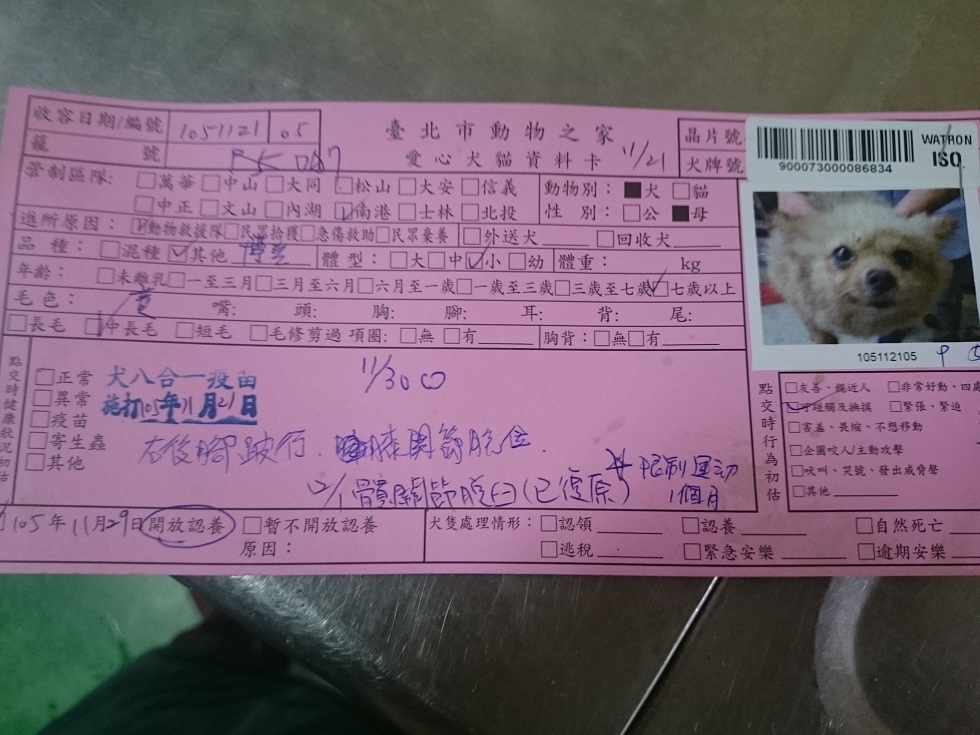 收容日期/編號 1051121 05
臺北市動物之家
晶片號
WATRON
ISO
900073000086834
籠號
愛心犬貓資料卡 11/21
犬牌號
管制區隊: □萬華 □中山 □大同 □松山 □大安 □信義
動物別: ■犬 □貓
□中正 □文山 □內湖 ☑南港 □士林 □北投
性別: □公 ■母
進所原因: ☑動物救援隊 □民眾拾獲 □急傷救助 □民眾棄養 □外送犬 □回收犬
品種: □混種 ☑其他 博美 體型: □大 □中 ☑小 □幼 體重: kg
年齡: □未離乳 □一至三月 □三月至六月 □六月至一歲 □一歲至三歲 □三歲至七歲 ☑七歲以上
毛色: 黃 嘴: 頭: 胸: 腳: 耳: 背: 尾:
□長毛 ☑中長毛 □短毛 □毛修剪過 項圈: □無 □有 胸背: □無 □有
105112105
點交時健康狀況初估
□正常
□異常
□疫苗
□寄生蟲
□其他
犬八合一疫苗
施打105年11月21日
11/30
右後腳跛行. 膝關節脫位.
12/1 髖關節脫臼(已復原)
限制運動
1個月
點交時行為初估
□友善、親近人 □非常好動、四處
☑可碰觸及撫摸 □緊張、緊迫
□害羞、畏縮、不想移動
□企圖咬人/主動攻擊
□吠叫、哭號、發出威脅聲
□其他
105年11月29日開放認養 □暫不開放認養
原因:
犬隻處理情形: □認領 □認養 □自然死亡
□逃稅 □緊急安樂 □逾期安樂